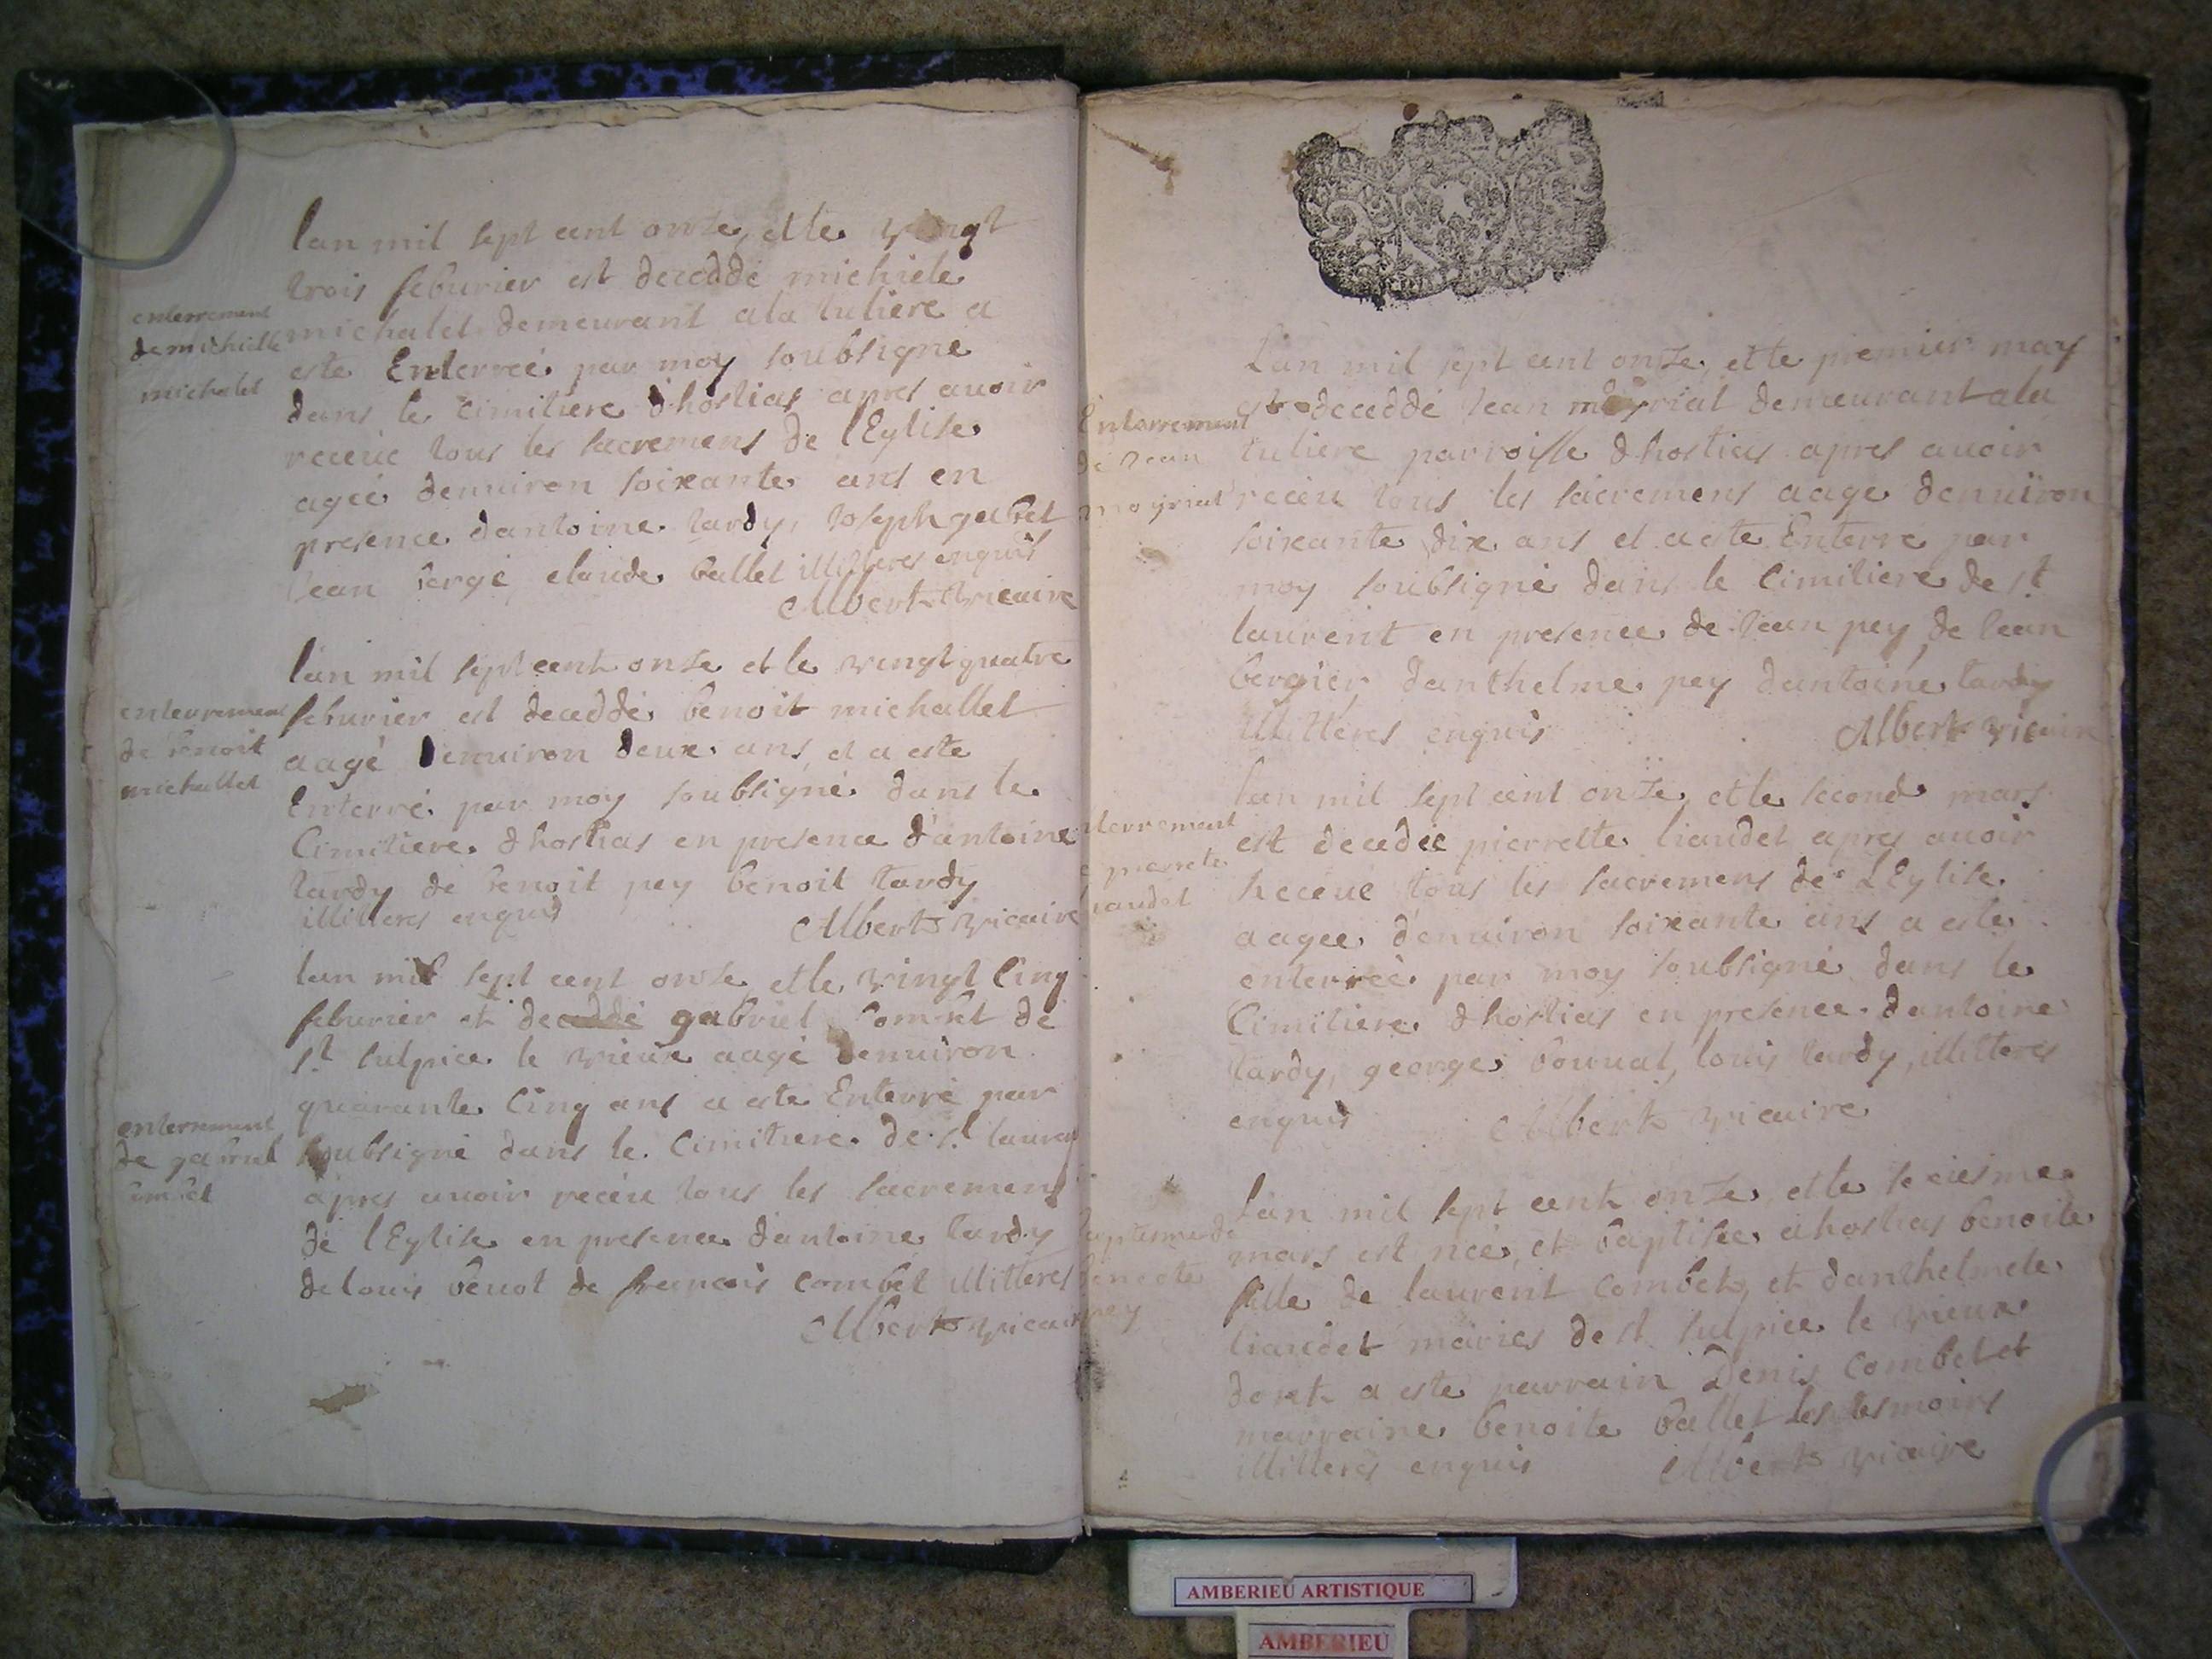 lan mil sept cent onze, et le vingt
trois feburier est deceddé michiele
enterrement
de michielle
michalet
michalet demeurant a la tuliere a
este Enterreé par moy soubsigne
dans le cimitiere dhostias apres avoir
receüe tous les sacremens de lEglise
ageé denuiron soixante ans en
presence dantoine tardy, Joseph
Jean claude ballet illitteres enquis
Albert vicaire
lan mil sept cent onze et le vingt quatre
enterrement
de benoit
michallet
feburier est deceddé benoit michallet
aagé denuiron deux ans, et a este
Enterré par moy soubsigné dans le
Cimitiere dhostias en presence d'antoine
tardy de benoit pey benoit tardy
illitteres enquis
Albert vicaire
lan mil sept cent onze et le vingt cinq
feburier est deceddé gabriel Combet de
st sulpice le vieux aagé denuiron
quarante cinq ans a este Enterré par
enterrement
de gabriel
soubsigné dans le Cimitiere de st
apres auoir receu tous les sacremens
de lEglise en presence dantoine tardy
de louis benot de francois combet illitteres
Albert
Lan mil sept cent onze, et le premier may
Enterrement
de Jean
moyriat
est deceddé Jean moyriat demeurant a la
tuliere parroisse dhostias apres auoir
receu tous les sacremens aage denuiron
soixante dix ans et a este Enterre par
moy soubsigné dans le Cimitiere de st
laurent en presence de Jean pey, de Jean
bergier, danthelme pey dantoine tardy
illitteres enquis
Albert vicaire
lan mil sept cent onze, et le second mars
est decedée pierrette liaudet apres auoir
receue tous les sacremens de LEglise
aagee d'enuiron soixante ans a este
enterreé par moy soubsigné dans le
Cimitiere dhostias en presence dantoine
tardy, george louis tardy, illitteres
enquis
Albert vicaire
Lan mil sept cent onze, et le
mars est neé, et baptisée a hostias benoite
fille de laurent Combet, et danthelmete
liaudet mariés de st sulpice le vieux
dont a este parrain Denis Combet et
marraine benoite ballet les tesmoins
illitteres enquis
Albert vicaire
AMBERIEU ARTISTIQUE
AMBERIEU